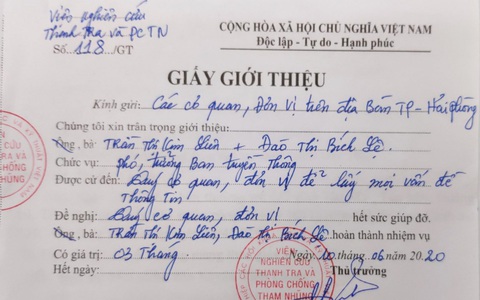 Viện nghiên cứu
Thanh tra và PCTN
Số: 118/GT
CỘNG HÒA XÃ HỘI CHỦ NGHĨA VIỆT NAM
Độc lập - Tự do - Hạnh phúc
GIẤY GIỚI THIỆU
Kính gửi: Các cơ quan, Đơn vị trên địa Bàn TP - Hải phòng
Chúng tôi xin trân trọng giới thiệu:
Ông, bà: Trần Thị Kim Liên + Đào Thị Bích Lệ
Chức vụ: phó, trưởng Ban truyền Thông
Được cử đến: cơ quan, đơn vị để lấy mọi vấn đề
Thông tin
Đề nghị: cơ quan, đơn vị hết sức giúp đỡ.
Ông, bà: Trần Thị Kim Liên, Đào Thị Bích Lệ hoàn thành nhiệm vụ
Có giá trị: 03 Tháng Ngày 10 tháng 06 năm 2020
Hết ngày: Thủ trưởng
VIỆN
NGHIÊN CỨU
THANH TRA VÀ
PHÒNG CHỐNG
THAM NHŨNG